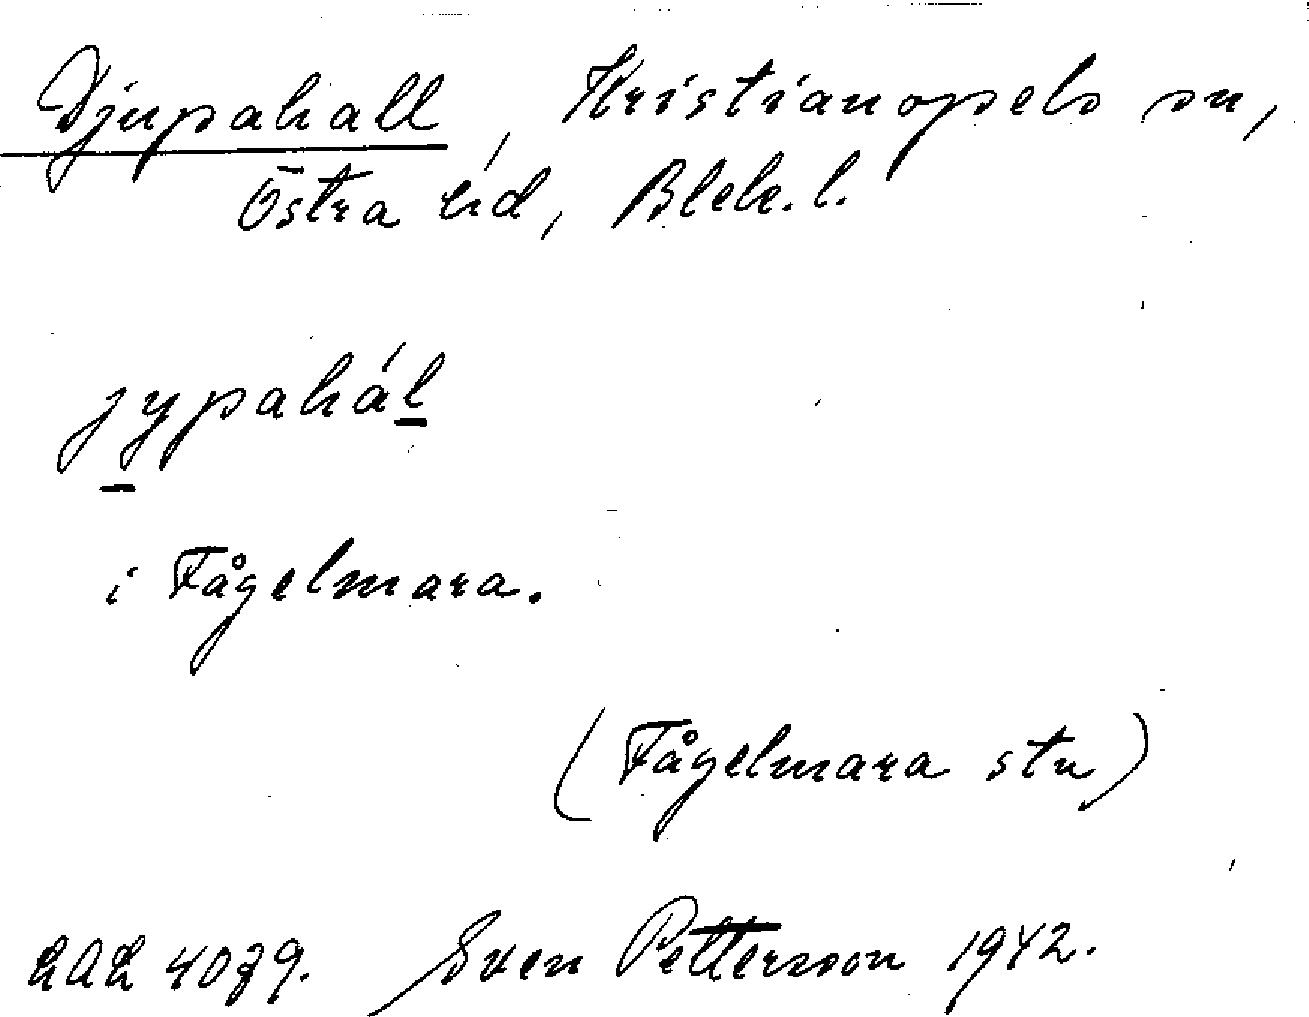 Djupahall, Kristianopels sn,
Östra hd, Blek. l.
jypahál
i Fågelmara.
(Fågelmara stn)
LAL 4079. Sven Pettersson 1942.